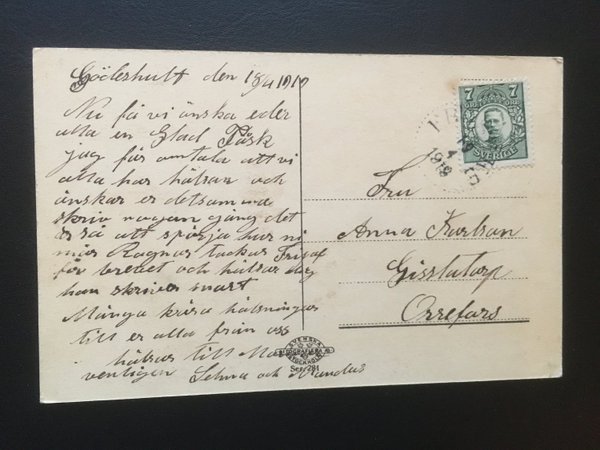 Göderhult den 18/4 1919
Nu få vi önska eder
alla en Glad Påsk
jag får omtala att vi
alla har hälsan och
önskar er detsamma
skriv någon gång det
är så att spörja hur ni
mår Ragnar tackar Frisaf
för brevet och hälsar dig
han skriver snart
Många kära hälsningar
till er alla från oss
hälsa till
venligen Selma och Mandus
7 7
SVERIGE
1919
Fru
Anna Karlson
Gisslatorp
Orrefors
SVENSKA
STOCKHOLM
Ser. 281